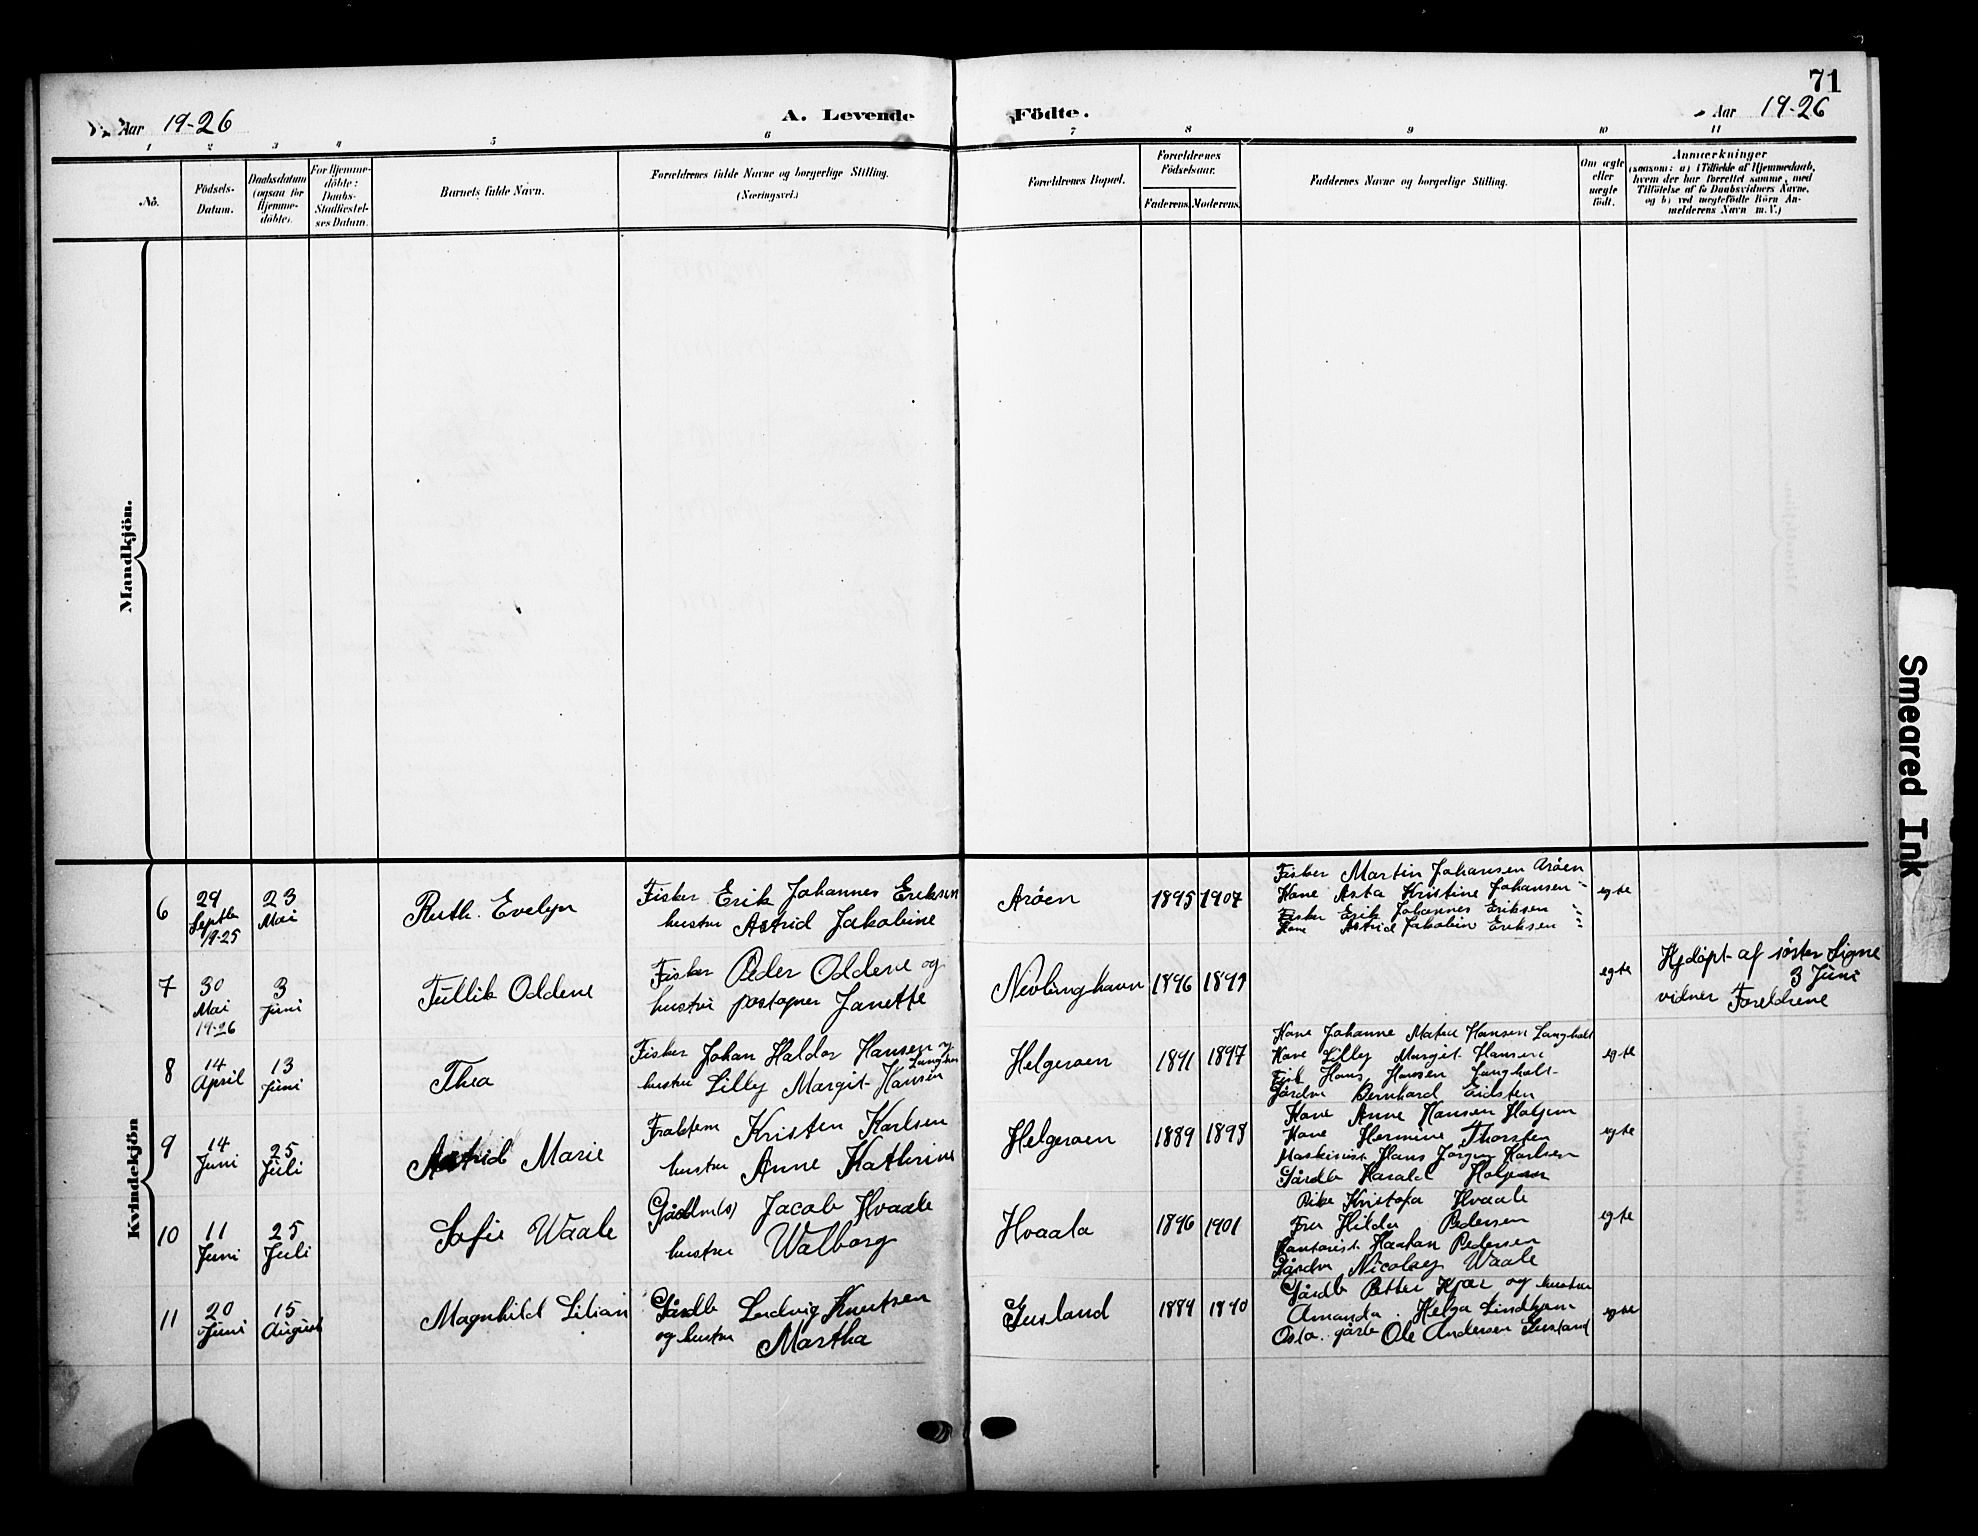 71
Aar 19-26
A. Levende Födte.
Aar 19-26
1 2 3 4 5 6 7 8 9 10 11
No.
Födsels-Datum.
Daabsdatum (ogsaa for Hjemme-döbte).
For Hjemme-döbte: Daabs-Stadfæstel-ses Datum.
Barnets fulde Navn.
Forældrenes fulde Navne og borgerlige Stilling.
(Næringsvei.)
Forældrenes Bopæl.
Forældrenes Födselsaar.
Faderens. Moderens.
Faddernes Navne og borgerlige Stilling.
Om ægte eller uægte födt.
Anmærkninger
(saasom: a) i Tilfælde af Hjemmedaab,
hvem der har forrettet samme, med
Tilföielse af to Daabsvidners Navne,
og b) ved uægtefödte Börn An-
melderens Navn m. V.)
Mandkjön.
Kvindekjön
6
29 Septbr 19-25
23 Mai
Ruth. Evelyn
Fisker Erik Johannes Eriksen
hustru Astrid Jakobine
Aröen
1895 1907
Fisker Martin Johansen Aröen
Kone Asta Kristine Johansen -
Fisker Erik Johannes Eriksen
Kone Astrid Jakobin Eriksen
egte
7
30 Mai 19-26
3 Juni
Tullik Oddene
Fisker Peder Oddene og
hustru postopner Janette
Nevlunghavn
1896 1899
egte
Hjdöpt af söster Signe
3 Juni
vidner Foreldrene
8
14 April
13 Juni
Thea
Fisker Johan Haldor Hansen og
hustru Lilly Margit Hansen
Helgeroen
1891 1897
Kone Johanne Matea Hansen Langholt
Kone Lilly Margit Hansen
Fisk Hans Hansen Langholt
Gårdbr Bernhard Eidsten
egte
9
14 Juni
25 Juli
Astrid Marie
Kristen Karlsen
hustru Anne Kathrine
Helgeroen
1889 1898
Kone Anne Hansen
Kone Hermine Thorsten
Maskinist Hans Jörgen Karlsen
Gårdb Harald
egte
10
11 Juni
25 Juli
Sofie Waale
Jacob Hvaale
hustru Walborg
Hvaala
1896 1901
Pike Kristofa Hvaale
Fru Hilda Pedersen
Kontorist Haakon Pedersen
Gårdbr Nicolay Waale
egte
11
20 Juni
15 August
Magnhild Lilian
Gårdb Ludvig Knutsen
og hustru Martha
Gusland
1889 1890
Gårdb Petter Kjær og hustru
Amanda. Helga Lindhjem
Gårdb Ole Andersen Gusland
egte
Smeared Ink